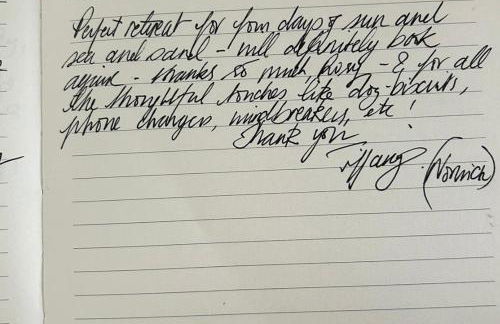 Perfect retreat for four days of sun and
sea and sand - will definitely book
again - thanks so much, Rosy - & for all
the thoughtful touches like dog-biscuits,
phone chargers, windbreakers, etc!
Thank you
Tiffany (Norwich)